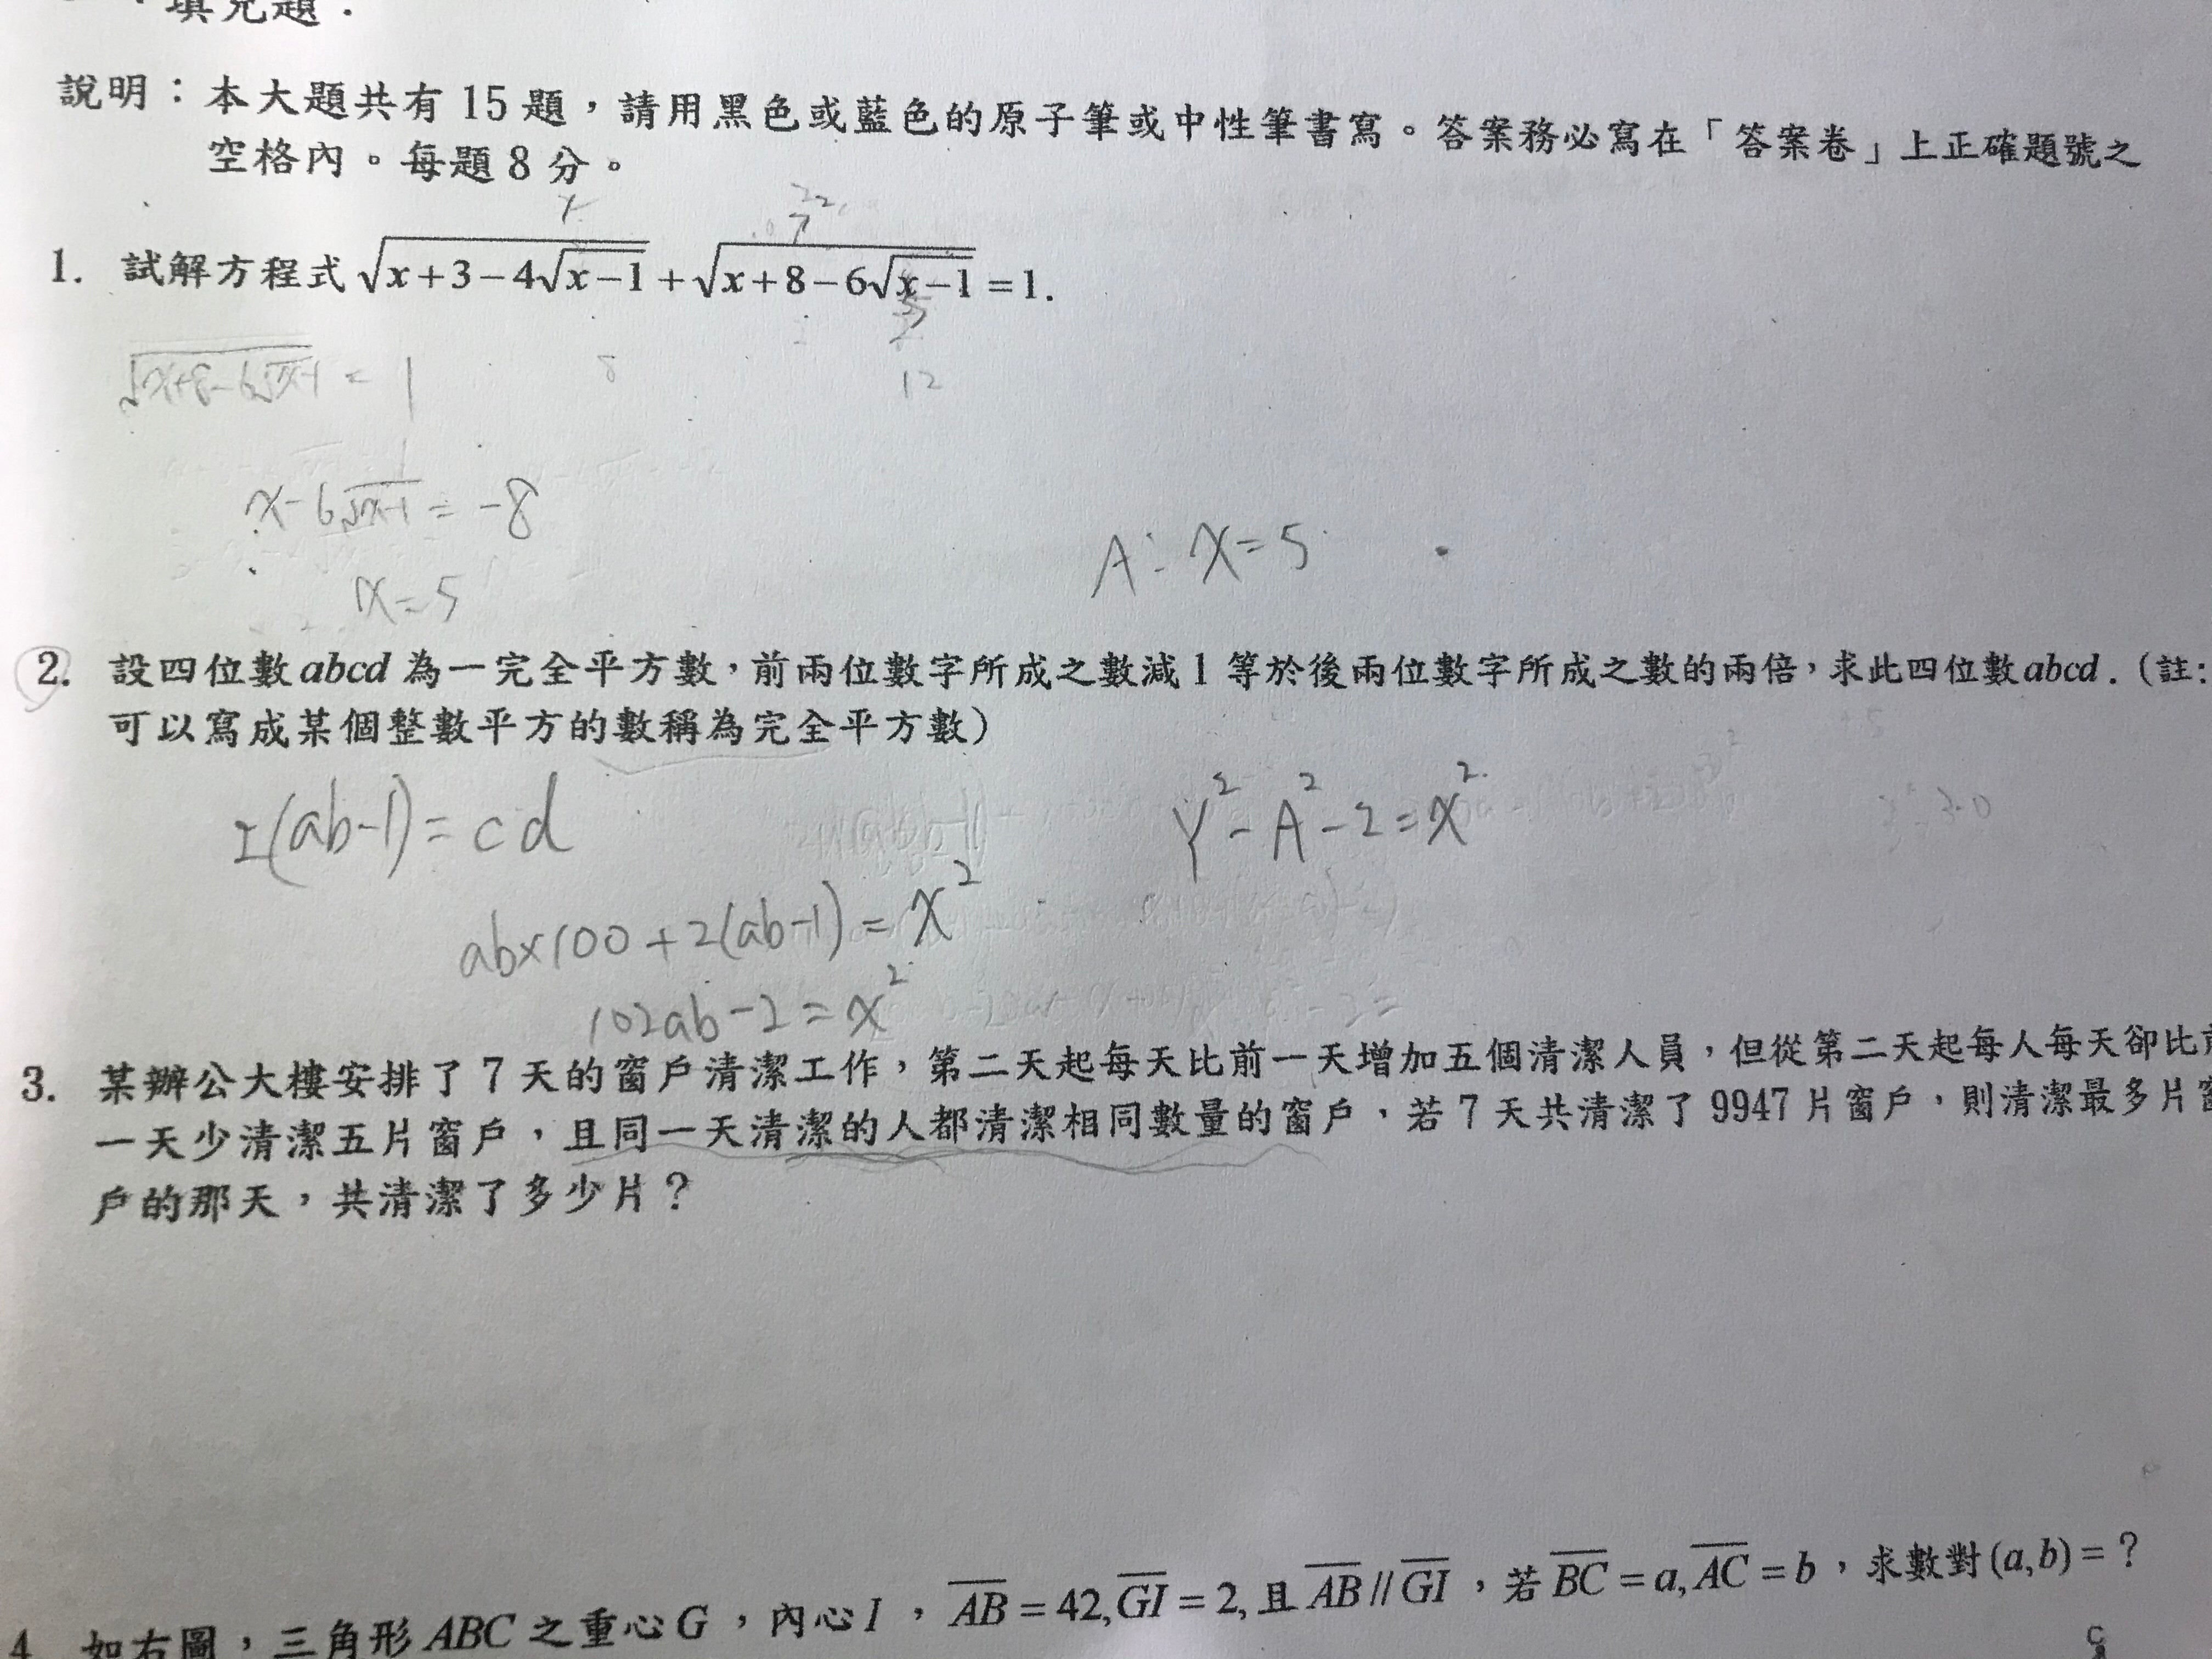 填充題.
說明：本大題共有 15 題，請用黑色或藍色的原子筆或中性筆書寫。答案務必寫在「答案卷」上正確題號之
空格內。每題 8 分。
1. 試解方程式 √(x+3-4√(x-1)) + √(x+8-6√(x-1)) = 1.
√(x+8-6√(x-1)) = 1
8 12
x-6√(x-1) = -8
x=5
A: x=5
2. 設四位數 abcd 為一完全平方數，前兩位數字所成之數減 1 等於後兩位數字所成之數的兩倍，求此四位數 abcd. (註:
可以寫成某個整數平方的數稱為完全平方數)
(ab-1) = cd
Y² - A² - 2 = X²
ab×100 + 2(ab-1) = x²
102ab - 2 = x²
3. 某辦公大樓安排了 7 天的窗戶清潔工作，第二天起每天比前一天增加五個清潔人員，但從第二天起每人每天卻比
一天少清潔五片窗戶，且同一天清潔的人都清潔相同數量的窗戶，若 7 天共清潔了 9947 片窗戶，則清潔最多片
戶的那天，共清潔了多少片？
4. 如右圖，三角形 ABC 之重心 G，內心 I，AB = 42, GI = 2, 且 AB // GI，若 BC = a, AC = b，求數對 (a,b) = ?
C